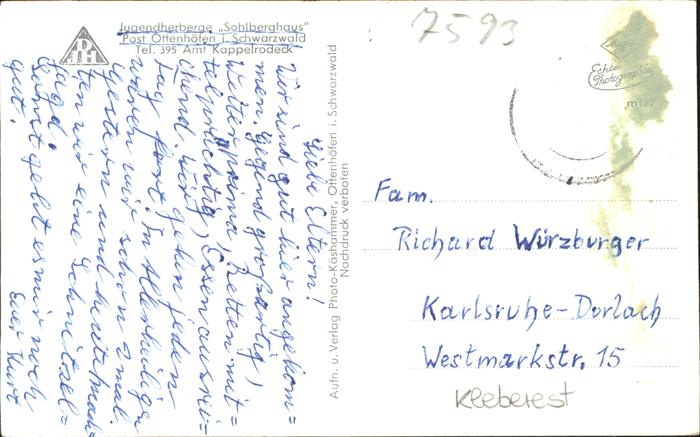 Jugendherberge „Sohlberghaus"
Post Ottenhöfen i. Schwarzwald
Tel. 395 Amt Kappelrodeck
Liebe Eltern!
Wir sind gut hier angekom=
men. Gegend großartig,
Wetter prima, Betten mit=
telprächtig, Essen ausrei=
chend. Wir gehen jeden
Tag fort. In Allerheiligen
waren wir schon 2 mal.
Gestern und heute mach=
ten wir eine Schnitzel=
jagd.
Sonst geht es mir noch
gut.
Euer Kurt
Aufn. u. Verlag Photo-Käshammer, Ottenhöfen i. Schwarzwald
Nachdruck verboten
7593
Echte
Photographie
Fam.
Richard Würzburger
Karlsruhe-Durlach
Westmarkstr. 15
Kleberest